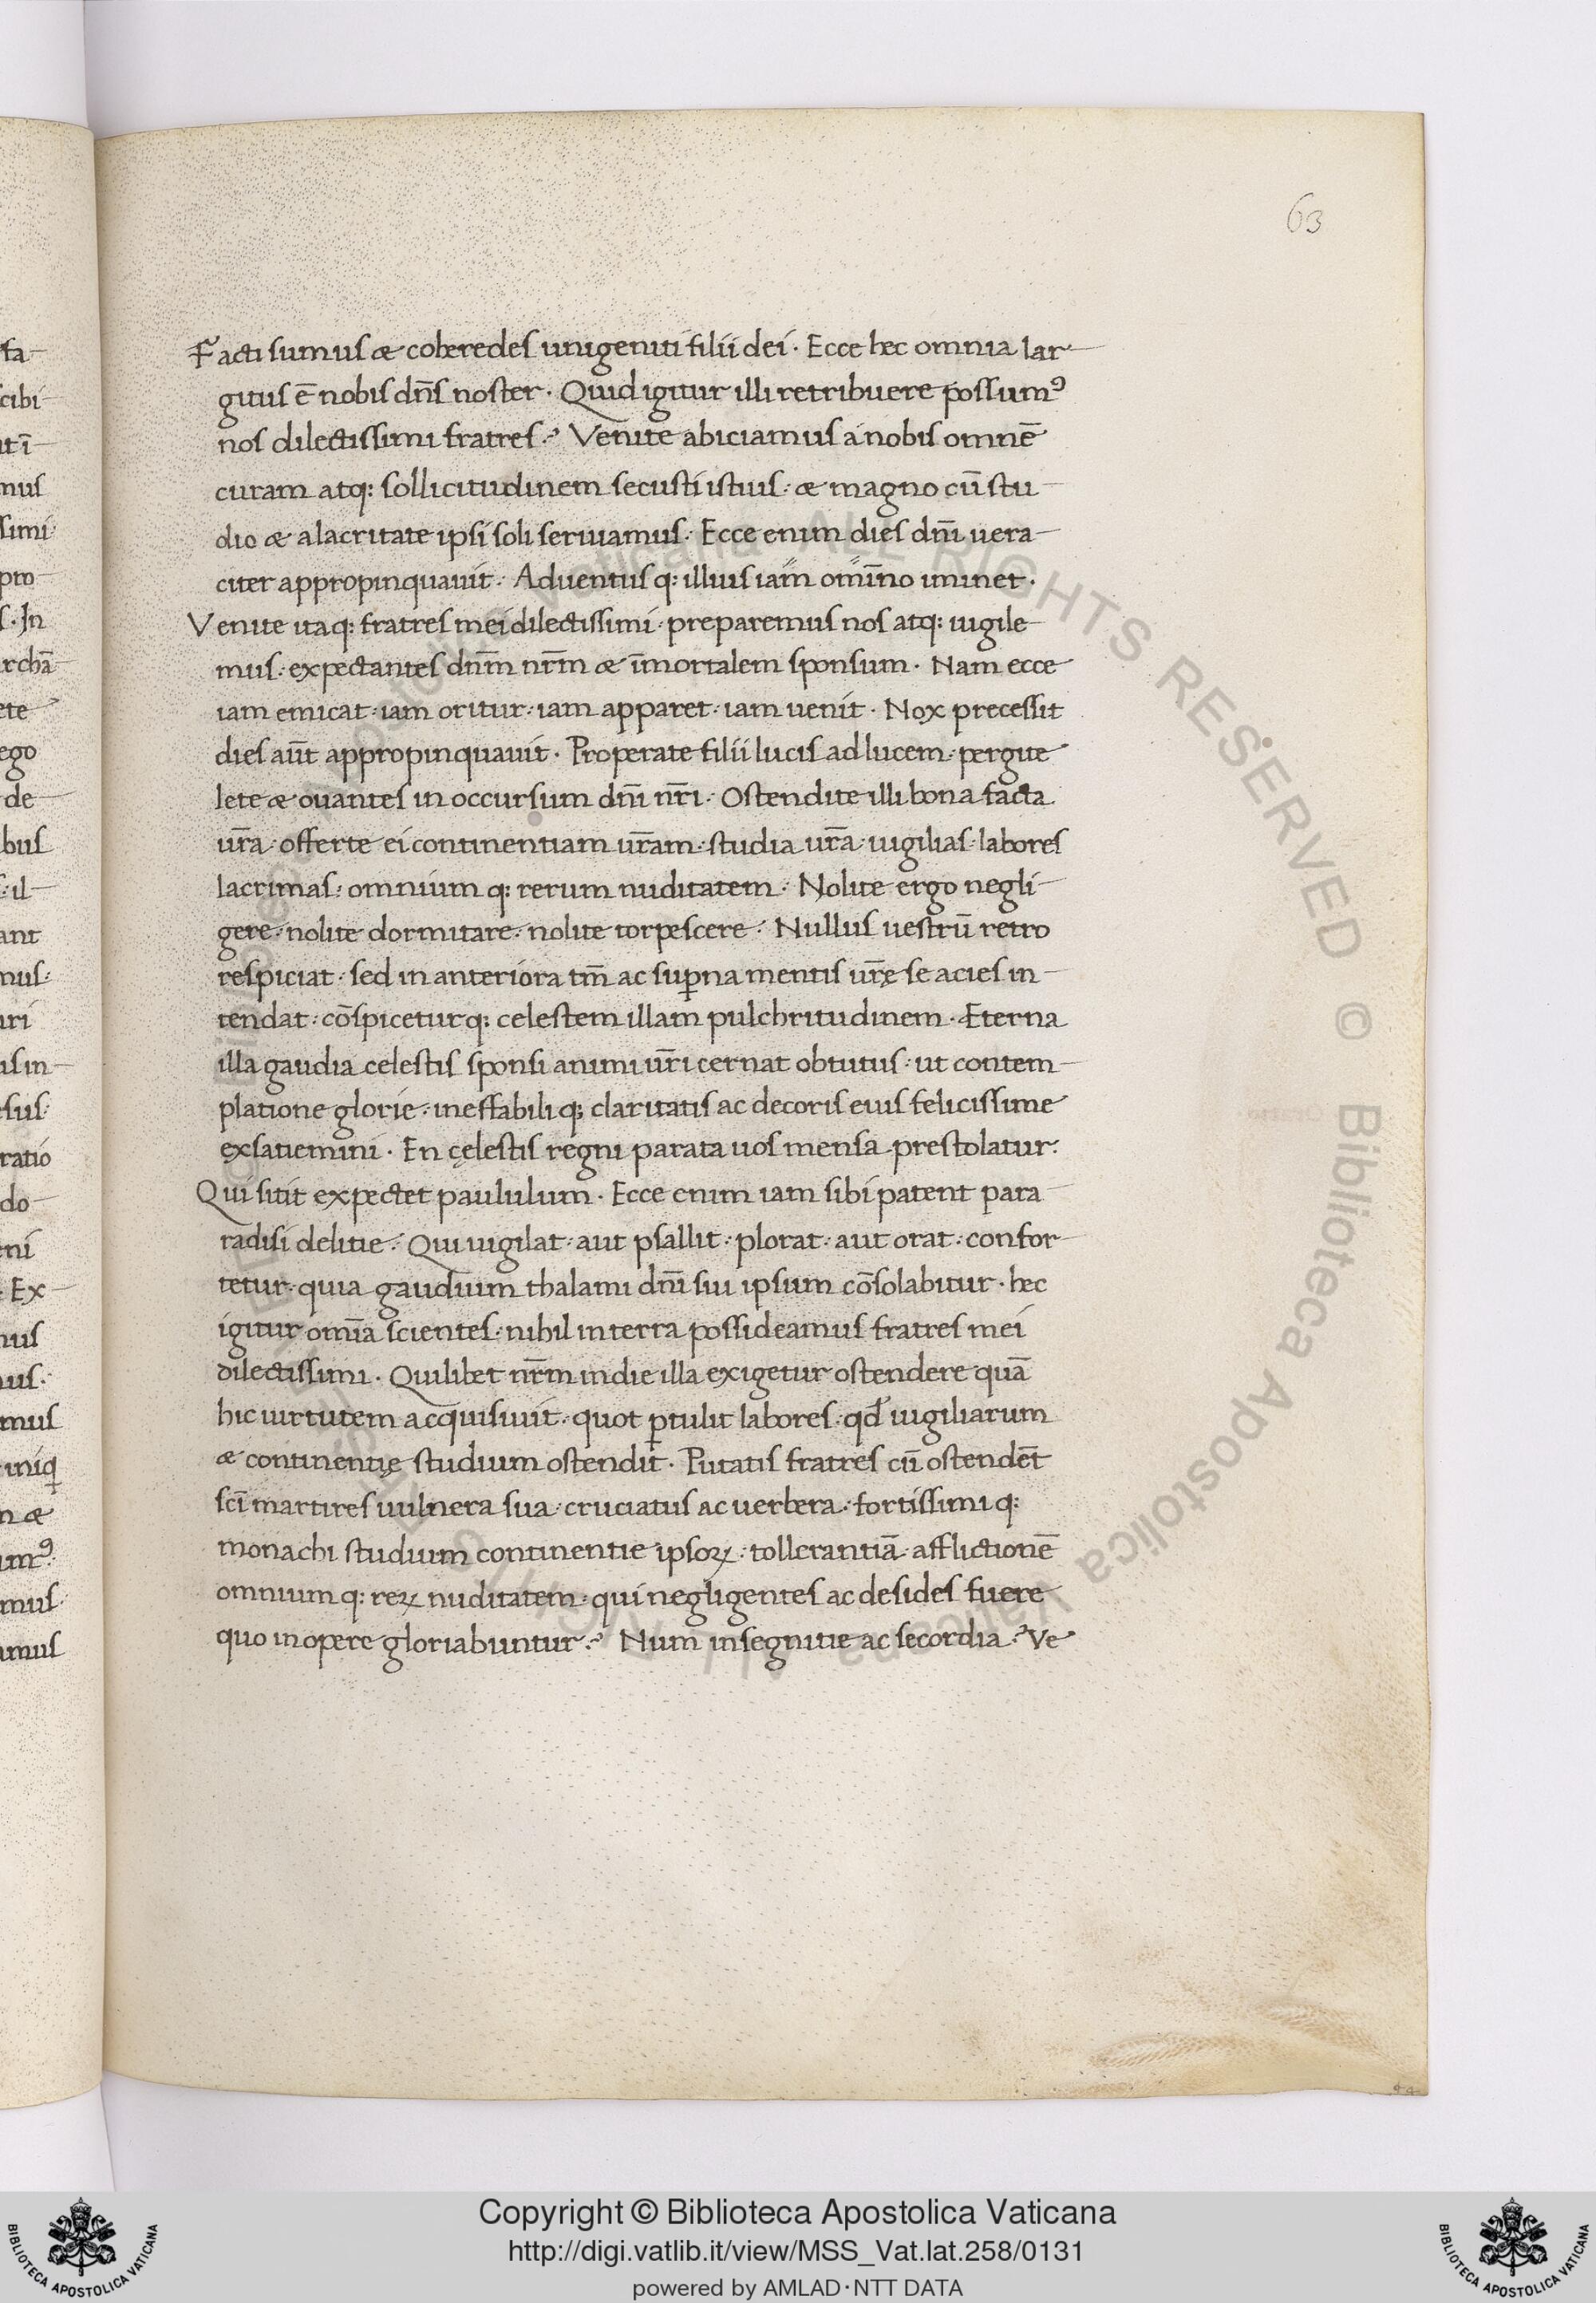 63
Facti sumus & coheredes unigeniti filii dei · Ecce hec omnia lar
gitus ē nobis dn̄s noster · Quid igitur illi retribuere possumꝰ
nos dilectissimi fratres? Venite abiciamus a nobis omnē
curam atq: sollicitudinem secusti istius · & magno cū stu
dio & alacritate ipsi soli seruiamus · Ecce enim dies dn̄i uera
citer appropinquauit · Aduentus q: illius iam omīno iminet ·
Venite itaq: fratres mei dilectissimi · preparemus nos atq: uigile
mus · expectantes dn̄m nr̄m & īmortalem sponsum · Nam ecce
iam emicat · iam oritur · iam apparet · iam uenit · Nox precessit
dies aūt appropinquauit · Properate filii lucis ad lucem · pergite
lete & ouantes in occursum dn̄i nr̄i · Ostendite illi bona facta
ur̄a · offerte ei continentiam ur̄am · studia ur̄a · uigilias · labores
lacrimas · omnium q: rerum nuditatem · Nolite ergo negli
gere · nolite dormitare · nolite torpescere · Nullus uestrū retro
respiciat · sed in anteriora tm̄ ac suꝑna mentis ur̄ę se acies in
tendat · cōspiceturq: celestem illam pulchritudinem · Eterna
illa gaudia celestis sponsi animi ur̄i cernat obtutus · ut contem
platione glorie · ineffabili q; claritatis ac decoris eius felicissime
exsatiemini · En cęlestis regni parata uos mensa prestolatur ·
Qui sitit expectet paululum · Ecce enim iam sibi patent para
radisi delitie · Qui uigilat · aut psallit · plorat · aut orat · confor
tetur · quia gaudium thalami dn̄i sui ipsum cōsolabitur · hec
igitur omīa scientes · nihil in terra possideamus fratres mei
dilectissimi · Quilibet nr̄m in die illa exigetur ostendere quā
hic uirtutem acquisiuit · quot ꝑtulit labores · qd̄ uigiliarum
& continentię studium ostendit · Putatis fratres cū ostendēt
sc̄i martires uulnera sua · cruciatus ac uerbera · fortissimi q:
monachi studium continentie ipsoꝝ · tollerantiā · afflictionē
omnium q: reꝝ nuditatem · qui negligentes ac desides fuere
quo in opere gloriabuntur? Num in segnitie ac secordia? Ve
Copyright © Biblioteca Apostolica Vaticana
http://digi.vatlib.it/view/MSS_Vat.lat.258/0131
powered by AMLAD·NTT DATA